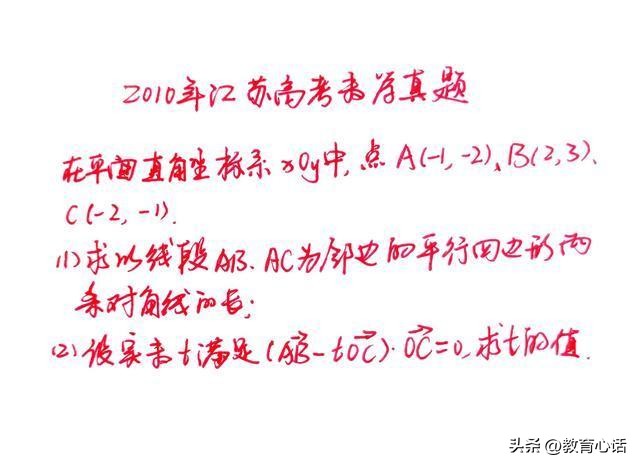 2010年江苏高考数学真题
在平面直角坐标系xOy中,点A(-1,-2)、B(2,3)、
C(-2,-1).
(1)求以线段AB、AC为邻边的平行四边形两
条对角线的长;
(2)设实数t满足(AB-tOC)·OC=0,求t的值.
头条 @教育心话